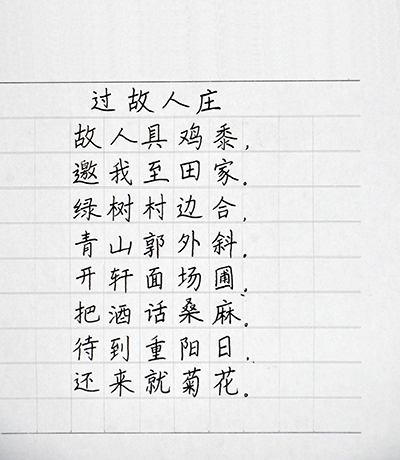 过故人庄
故人具鸡黍，
邀我至田家。
绿树村边合，
青山郭外斜。
开轩面场圃。
把酒话桑麻。
待到重阳日，
还来就菊花。